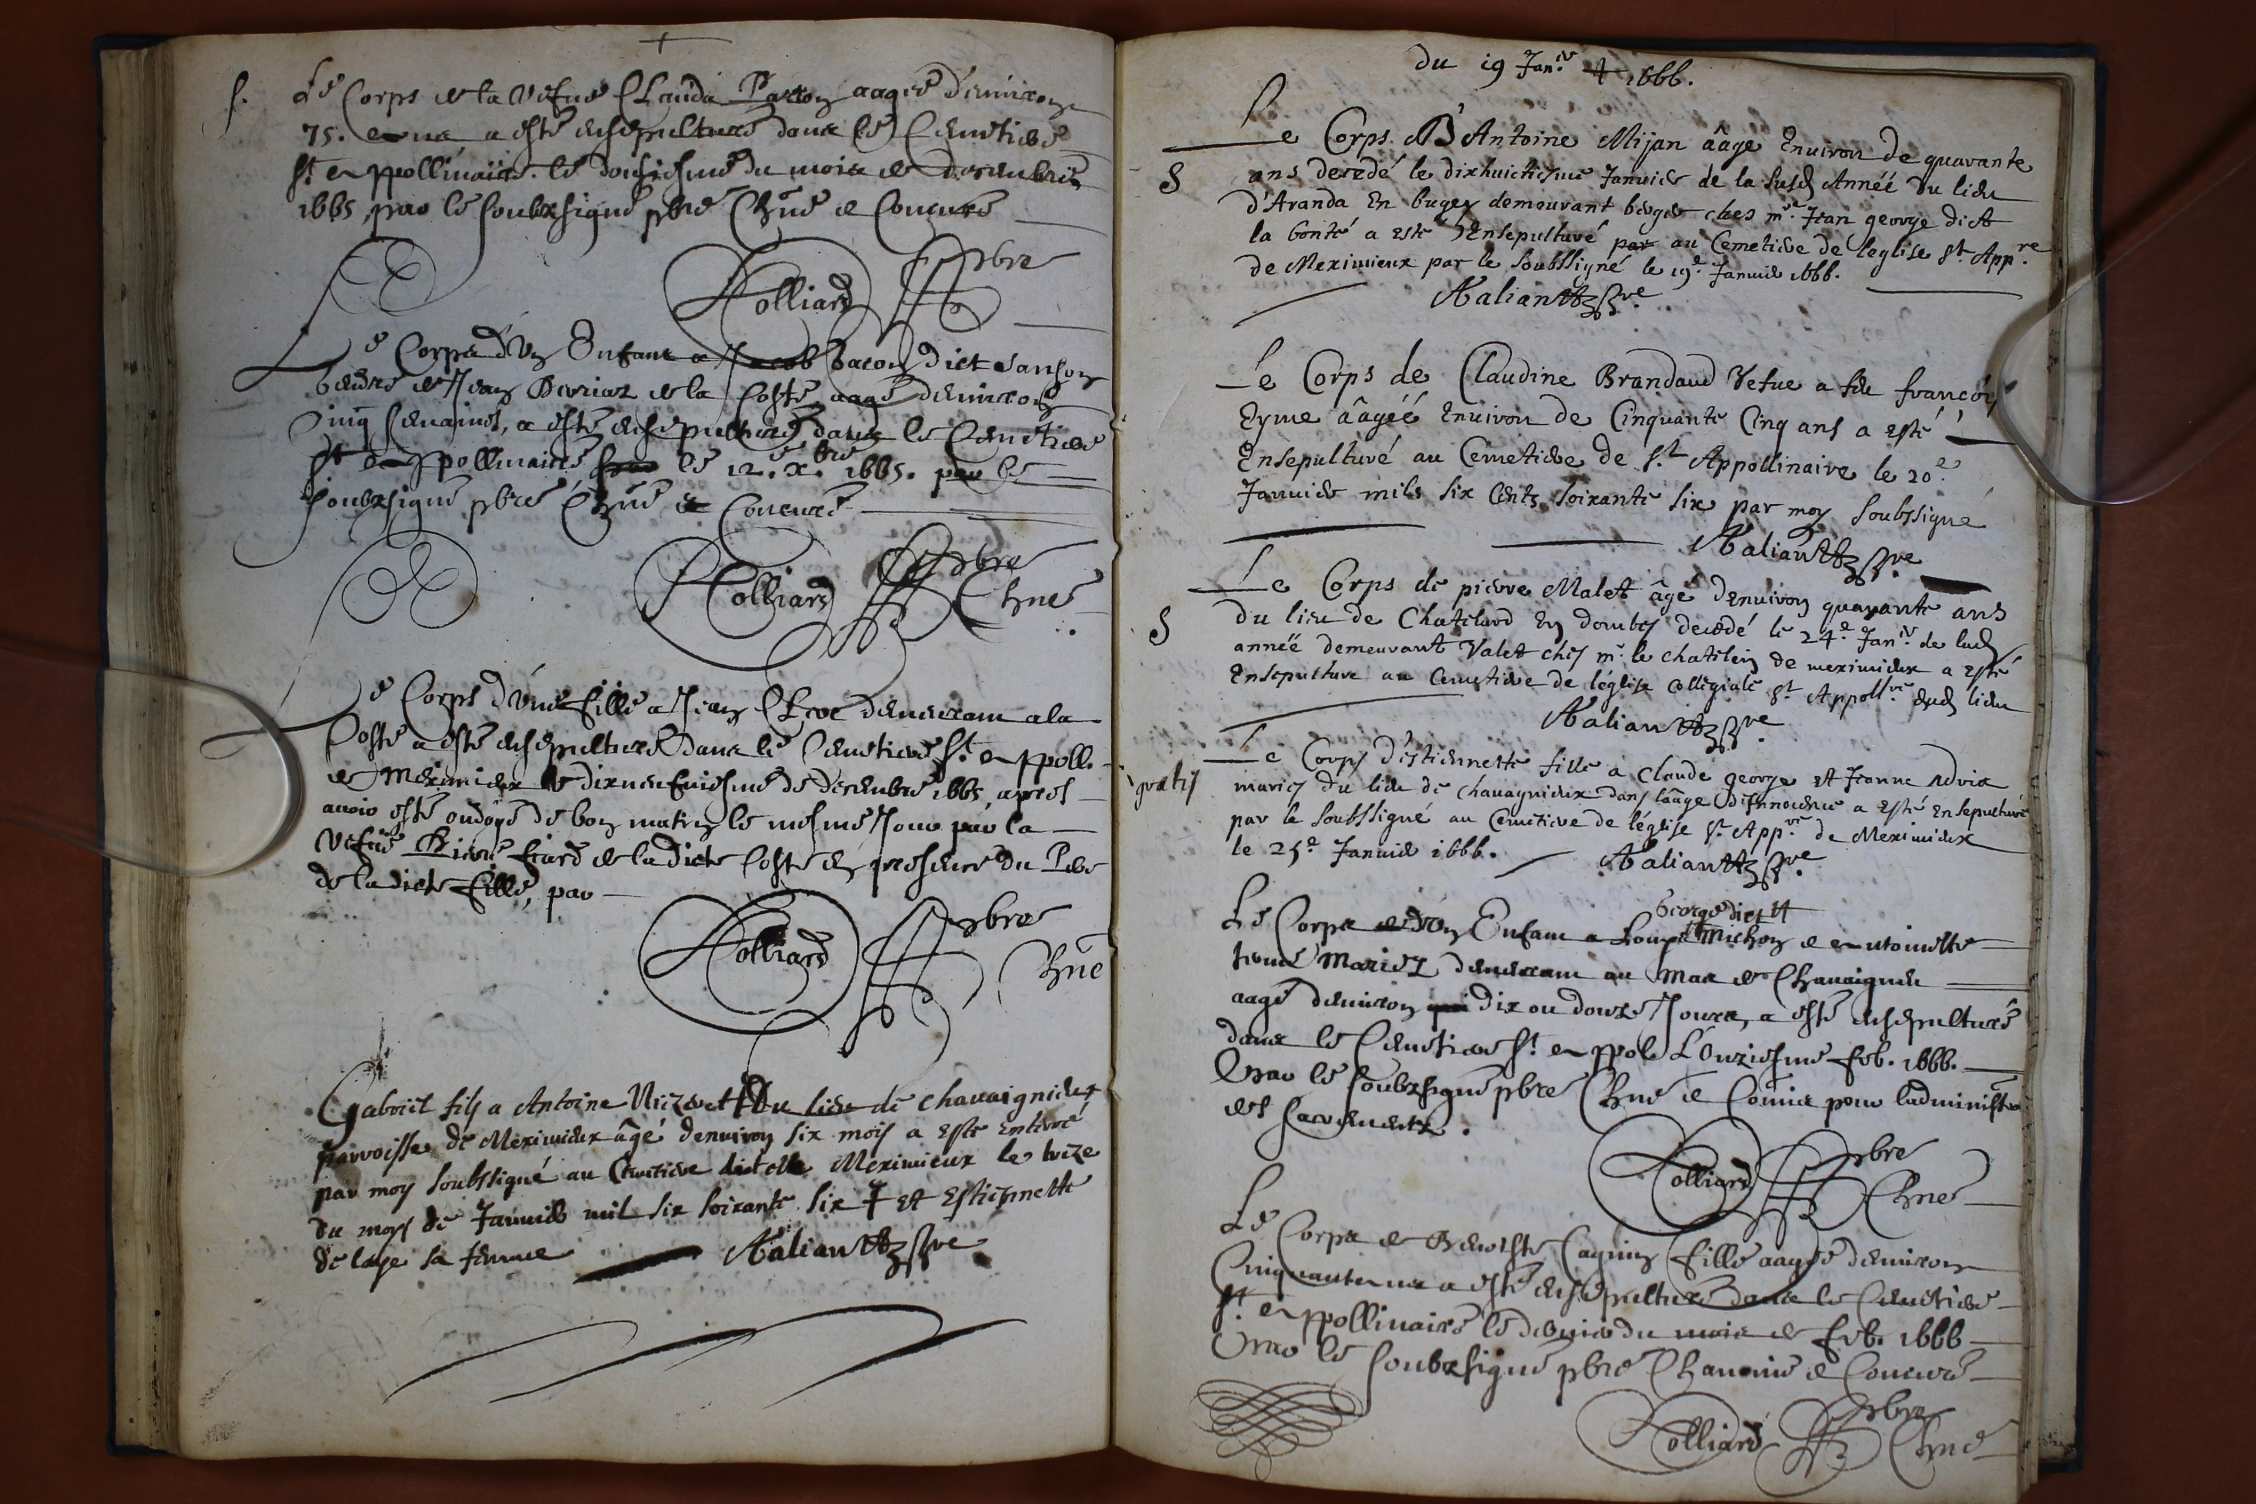 s.
Le Corps de la vefve Clauda aagée d'environ
75. ans a esté ensepulturé dans le Cemetiere
St Appollinaire. le douziesme du mois de decembre
1665 par le soubzsigné pbre Chne & Concuré
Folliard pbre
Le Corps d'Un Enfant a Jacob Bacon dict Sanson
gendre de Jean de la Coste, aagé d'environ
Cinq semaines, a esté ensepulturé dans le Cemetiere
St Appollinaire le 12.e xbre 1665. par le
soubzsigné pbre Chne & Concuré
Folliard pbre
Chne
Le Corps d'Une fille a Jean demeurant a la
Coste a esté ensepulturé dans le Cemetiere St Appolli.
de Meximieux le dixneufviesme de decembre 1665, apres
avoir esté ondoyé de bon matin le mesme Jour par la
vefve Pierre de la dicte Coste en presence du Pere
de la dicte fille, par
Folliard pbre
Chne
Gabriel fils a Antoine du lieu de Chavaignieux
parroisse de Meximieux âgé denviron six mois a este Enterré
par moy soubssigné au Cemetiere Meximieux le treze
du moys de Janvier mil six soixante six ╪ et Estiennette
de laye sa femme Valianttz pbre
du 19 Janer 1666.
S
Le Corps D'Antoine Mijan âage Environ de quarante
ans decedé le dixhuictiesme Janvier de la susd Année du lieu
d'Aranda En bugey demourant berger ches mr Jean george dict
la bonté a esté Ensepulturé par au Cemetiere de leglise St Appre
de Meximieux par le soubssigné le 19e Janvier 1666.
Valianttz pbre
Le Corps de Claudine Brandaud Vefue a feu françois
Eyme âagéé Environ de Cinquante Cinq ans a esté
Ensepulturé au Cemetiere de St Appollinaire le 20e
Janvier mils six Cents soixante six par moy soubssigné
Valianttz pbre
S
Le Corps de pierre Malet âgé denviron quarante ans
du lieu de Chatelard En dombes decedé le 24e Janer de lad
année demeurant Valet ches mr le chatelein de meximieux a esté
Ensepulturé au Cemetiere de léglise Collégiale St Appollre dud lieu
Valianttz pbre
gratis
Le Corps d'estiennette fille a Claude george et Jeanne
mariés du lieu de Chavagnieux dans lâage d'Innocence a esté Ensepulturé
par le soubssigné au Cemetiere de léglise St Appre de Meximieux
le 25e Janvier 1666. Valianttz pbre
George dict ╫
Le Corps d'Un Enfant a Loup ╫ Michon & Antoinette
mariez demeurant au Mas de Chavaignieu
aagé d'environ dix ou douze Jours, a esté ensepulturé
dans le Cemetiere St Appol. L'Onziesme feb. 1666.
Par le soubzsigné pbre Chne & Comis pour ladministr
des sacrements.
Folliard pbre
Chne
Le Corps de Benoiste fille aagée d'environ
Cinquante ans a esté ensepulturé dans le Cemetiere
St Appollinaire le dernier du mois de feb. 1666
Par le soubzsigné pbre Chanoine & Concuré
Folliard pbre
Chne